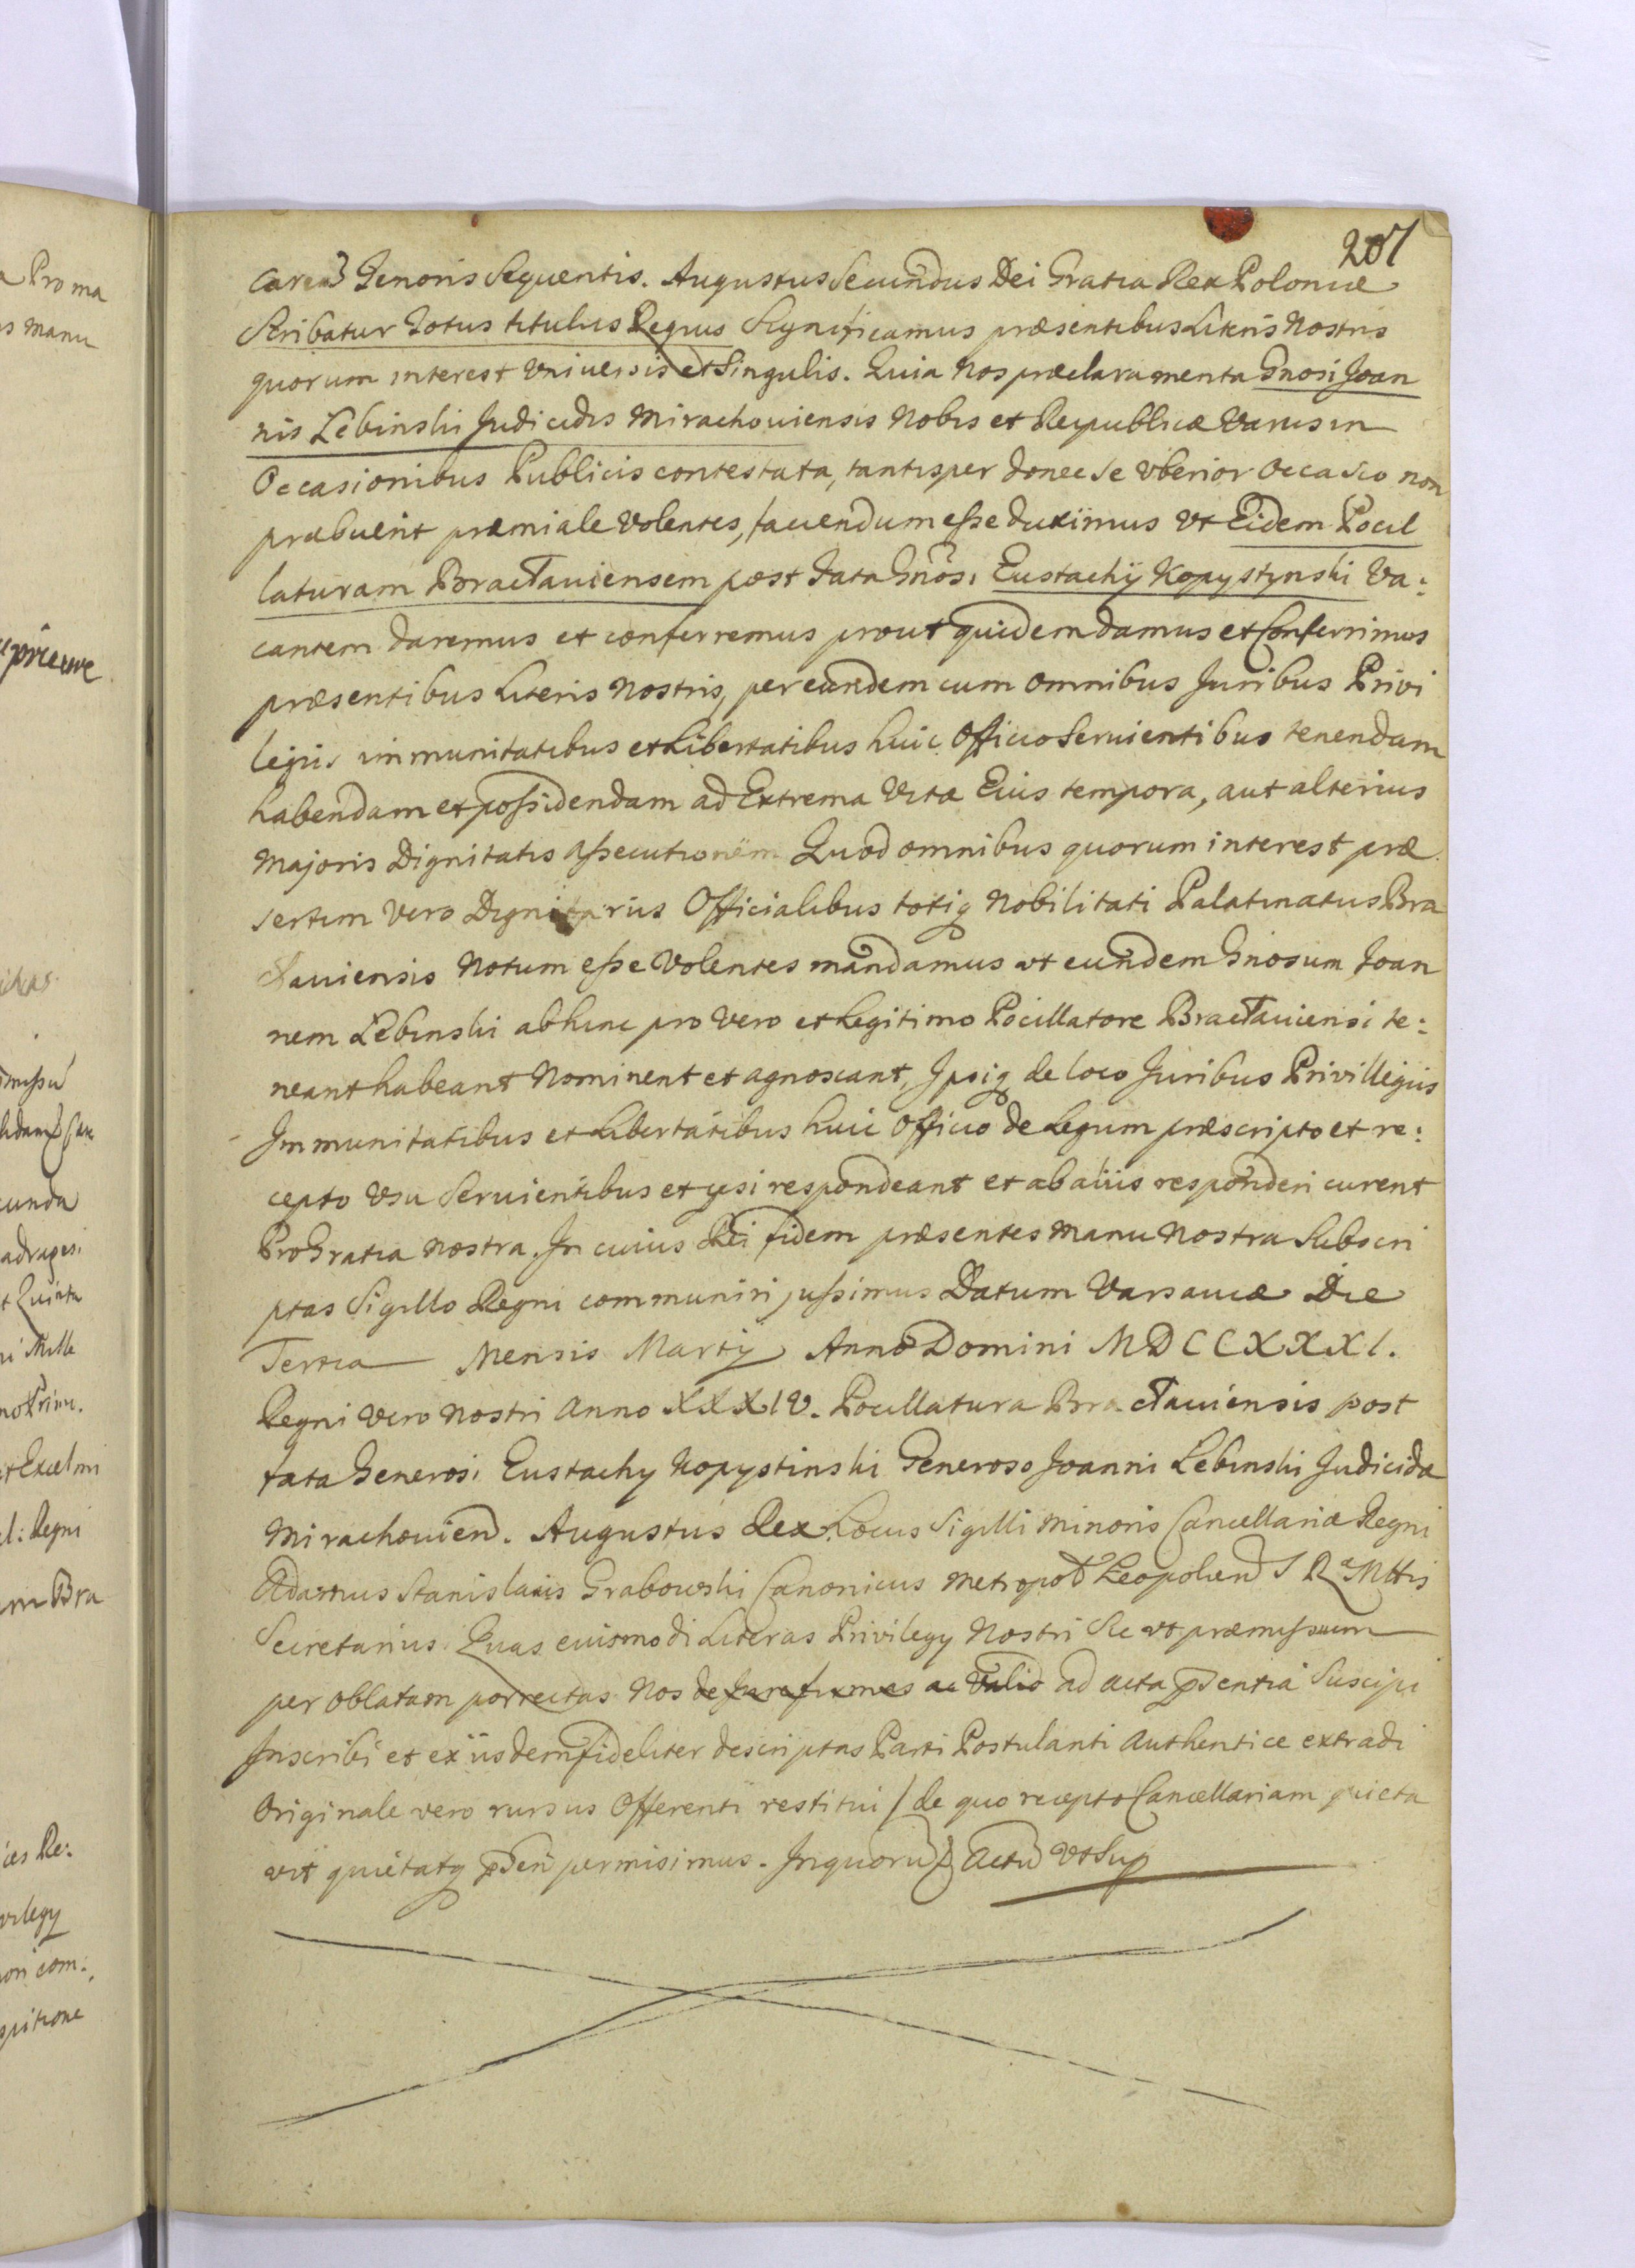 207
Caren Tenoris Sequentis. Augustus Secundus Dei Gratia Rex Poloniæ
Scribatur Totus titulus Regius Significamus præsentibus Litteris Nostris
quorum interest Universis et Singulis. Quia Nos præclara menta Gnosi Joan
nis Lebinski Judicidis Mirachouiensis Nobis et Reipublicæ Varus in
Occasionibus Publicis contestata, tantisper donec se Vberior Occasio non
præbuerit præmiale Volentes, fauendum esse duximus Vt Eidem Pocil
laturam Braclauiensem post fata Gnosi Eustachij Kopystynski Va:
cantem daremus et conferremus prout quidem damus et Conferrimus
præsentibus Literis Nostris, per eundem cum omnibus Juribus Privi
legiis immunitatibus et Libertatibus huic Officio Seruientibus tenendam
habendam et possidendam ad Extrema Vitæ Eius tempora, aut alterius
Majoris Dignitatis assecutionem Quod omnibus quorum interest præ
sertim Vero Dignitarius Officialibus totiq Nobilitati Palatinatus Bra
clauiensis Notum esse Volentes mandamus vt eundem Gnosum Joan
nem Lebinski abhinc pro Vero et Legitimo Pocillatore Braclauiensi te:
neant habeant Nominent et agnoscant, Ipsiq de loco Juribus Privillegiis
Immunitatibus et Libertatibus huic Officio de Legum præscripto et re:
cepto Vsu Seruientibus et ipsi respondeant et ab aliis responderi curent
Pro Gratia Nostra. In cuius Rei fidem præsentes Manu Nostra Subscri
ptas Sigillo Regni communiri jussimus Datum Varsauiæ Die
Tertia Mensis Martij Anno Domini MDCCXXXI.
Regni Vero Nostri Anno XXXIV. Pocillatura Braclauiensis post
fata Generosi Eustachy Kopystinski Generoso Joanni Lebinski Judicidæ
Mirachouien. Augustus Rex. Locus Sigilli Minoris Cancellariæ Regni
Adamus Stanislaus Grabowski Canonicus Metropol Leopolien S R Mttis
Secretarius. Quas euismodi Literas Privilegy Nostri Sic vt præmissum
per Oblatam porrectas Nos de Jure firmas ac Valid ad acta psentia Suscipi
Inscribi et ex iisdem fideliter descriptas Parti Postulanti Authentice extradi
Originale vero rursus Offerenti restitui / de quo recepto Cancellariam quieta
vit quietatq psen permisimus. In quoru Actu Vt Sup